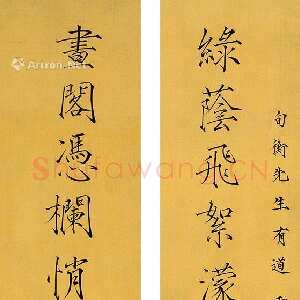 綠蔭飛絮濛
句衡先生有道
書閣憑欄悄
Artron.Net
Shufawang.CN